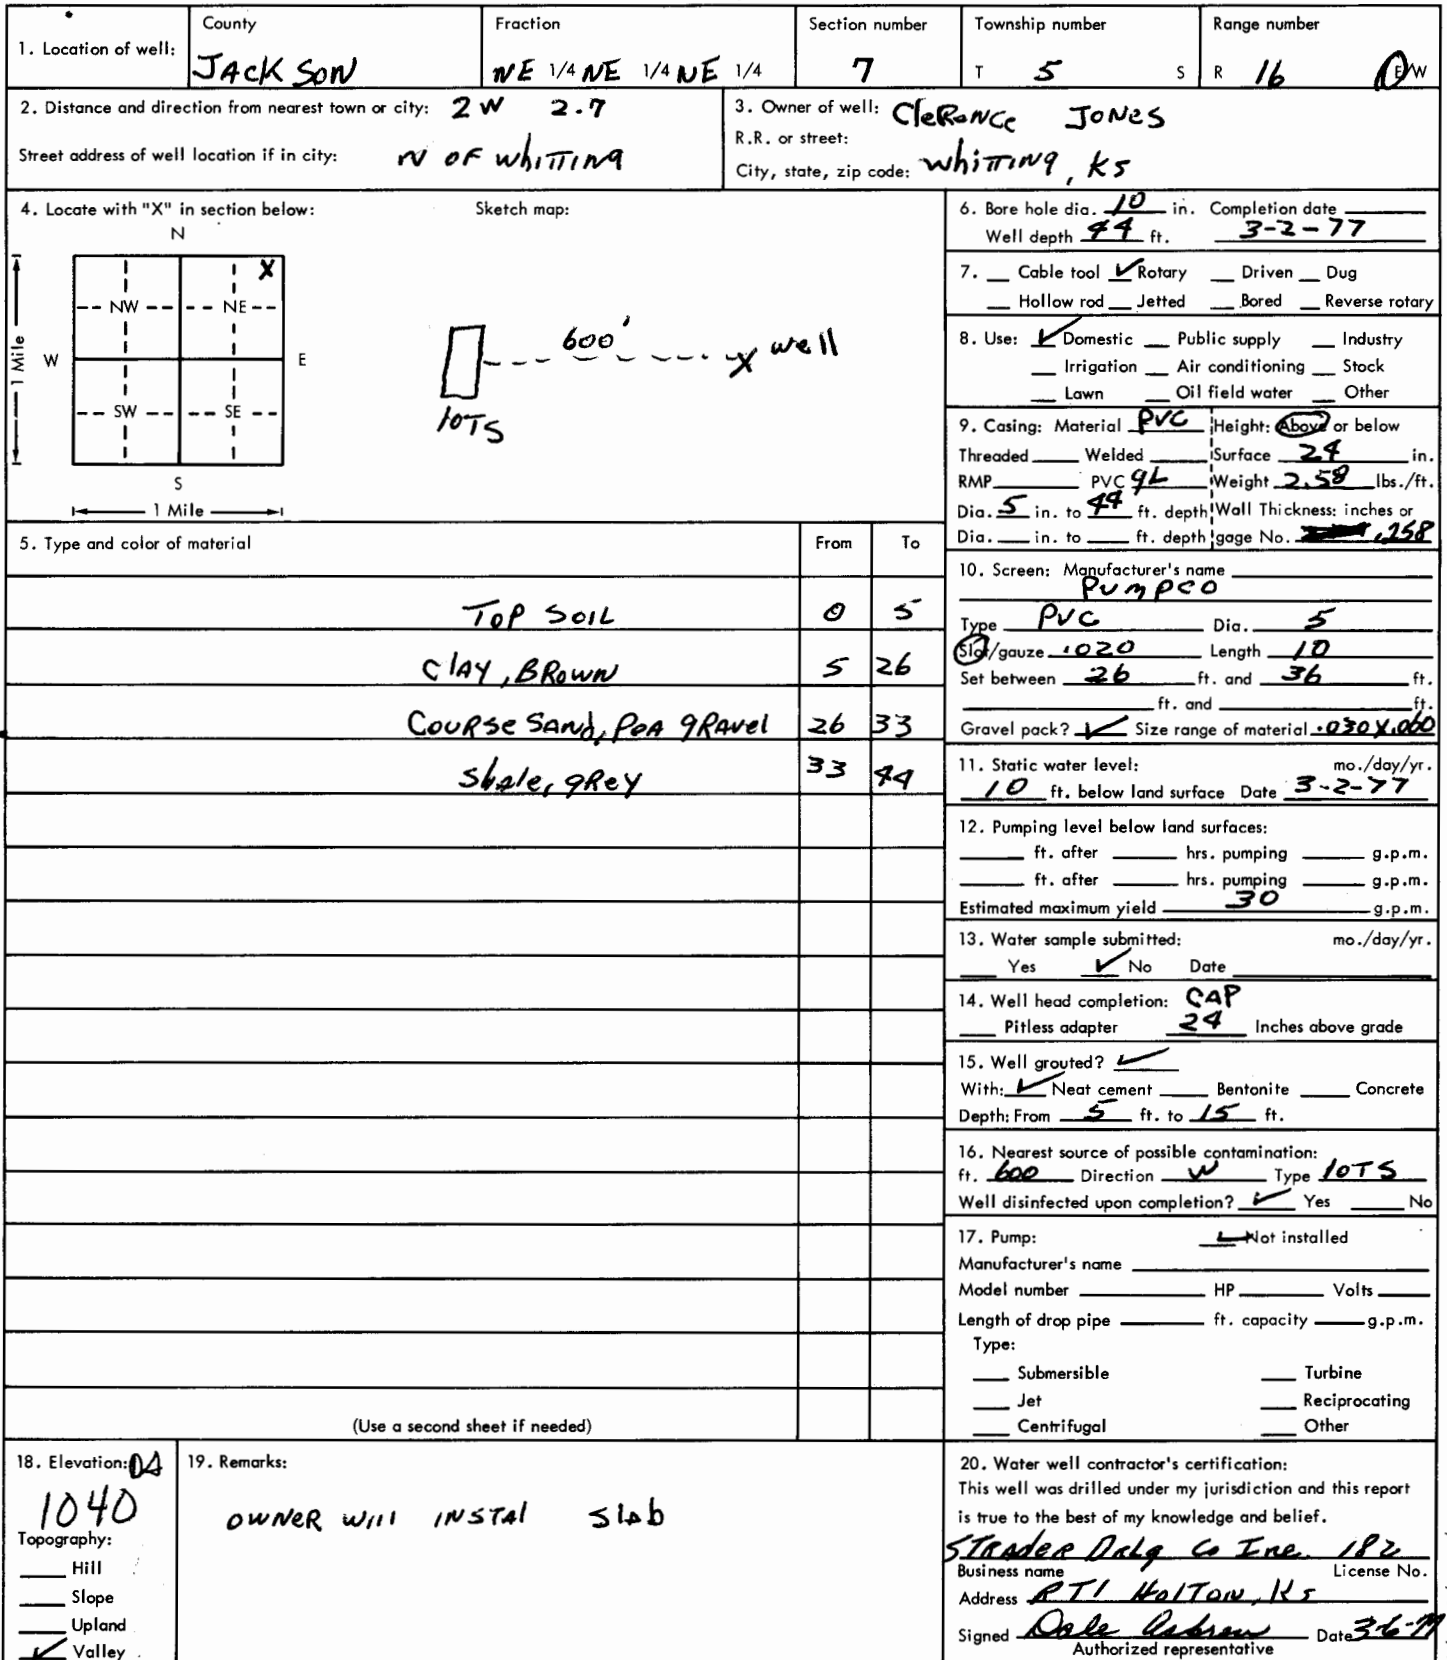 1. Location of well: County JACKSON Fraction NE 1/4 NE 1/4 NE 1/4 Section number 7 Township number T 5 S Range number R 16 E/W
2. Distance and direction from nearest town or city: 2W 2.7
N OF whiTTING
Street address of well location if in city:
3. Owner of well: CleRance JONES
R.R. or street:
City, state, zip code: whiTTING, KS
4. Locate with "X" in section below:
N
X
NW NE
W E
SW SE
S
1 Mile
1 Mile
Sketch map:
600' X well
lOTS
5. Type and color of material From To
TOP SOIL 0 5
ClAY, BROWN 5 26
COURSE SANd, PEA gRAvel 26 33
Shale, gREY 33 44
(Use a second sheet if needed)
6. Bore hole dia. 10 in. Completion date
Well depth 44 ft. 3-2-77
7. Cable tool ✓ Rotary Driven Dug
Hollow rod Jetted Bored Reverse rotary
8. Use: ✓ Domestic Public supply Industry
Irrigation Air conditioning Stock
Lawn Oil field water Other
9. Casing: Material PVC Height: Above or below
Threaded Welded Surface 24 in.
RMP PVC gL Weight 2.58 lbs./ft.
Dia. 5 in. to 44 ft. depth Wall Thickness: inches or
Dia. in. to ft. depth gage No. .258
10. Screen: Manufacturer's name
PUMPCO
Type PVC Dia. 5
Slot/gauze .020 Length 10
Set between 26 ft. and 36 ft.
ft. and ft.
Gravel pack? ✓ Size range of material .030 X .060
11. Static water level: mo./day/yr.
10 ft. below land surface Date 3-2-77
12. Pumping level below land surfaces:
ft. after hrs. pumping g.p.m.
ft. after hrs. pumping g.p.m.
Estimated maximum yield 30 g.p.m.
13. Water sample submitted: mo./day/yr.
Yes ✓ No Date
14. Well head completion: CAP
Pitless adapter 24 Inches above grade
15. Well grouted? ✓
With: ✓ Neat cement Bentonite Concrete
Depth: From 5 ft. to 15 ft.
16. Nearest source of possible contamination:
ft. 600 Direction W Type lOTS
Well disinfected upon completion? ✓ Yes No
17. Pump: ✓ Not installed
Manufacturer's name
Model number HP Volts
Length of drop pipe ft. capacity g.p.m.
Type:
Submersible Turbine
Jet Reciprocating
Centrifugal Other
18. Elevation:
1040
Topography:
Hill
Slope
Upland
✓ Valley
19. Remarks:
OWNER will INSTAl Slab
20. Water well contractor's certification:
This well was drilled under my jurisdiction and this report
is true to the best of my knowledge and belief.
STRADER DRLg Co Inc. 182
Business name License No.
Address RT1 HolTON, KS
Signed Dale Date 3-6-77
Authorized representative